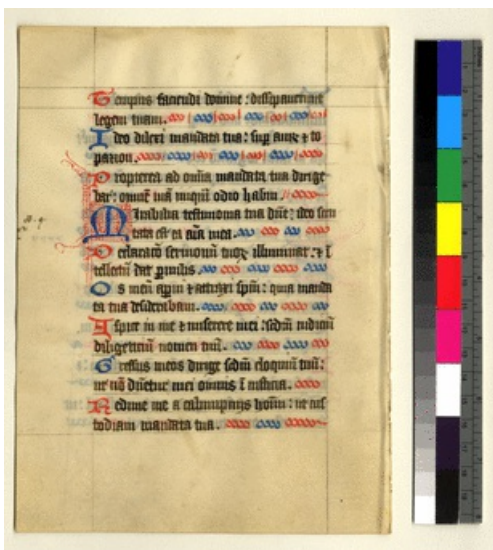 Tempus faciendi domine : dissipauerunt
legem tuam.
Ideo dilexi mandata tua : sup aurꝫ ⁊ to
pazion.
Propterea ad om̄ia mandata tua dirige
bar : omnē uiā iniquā odio habui.
Mirabilia testimonia tua dn̄e : ideo scru
tata est ea aīa mea.
Declaratio sermonū tuoꝝ illuminat : ⁊ ī
tellectū dat ꝑuulis.
Os meū apui ⁊ attraxi sp̄m : quia manda
ta tua desiderabam.
Aspice in me ⁊ miserere mei : scd̄m iudiciū
diligentiū nomen tuū.
Gressus meos dirige scd̄m eloquium tuū :
ut nō dn̄etur mei omnis īiusticia.
Redime me a calumpnijs hom̄ : ut cus
todiam mandata tua.